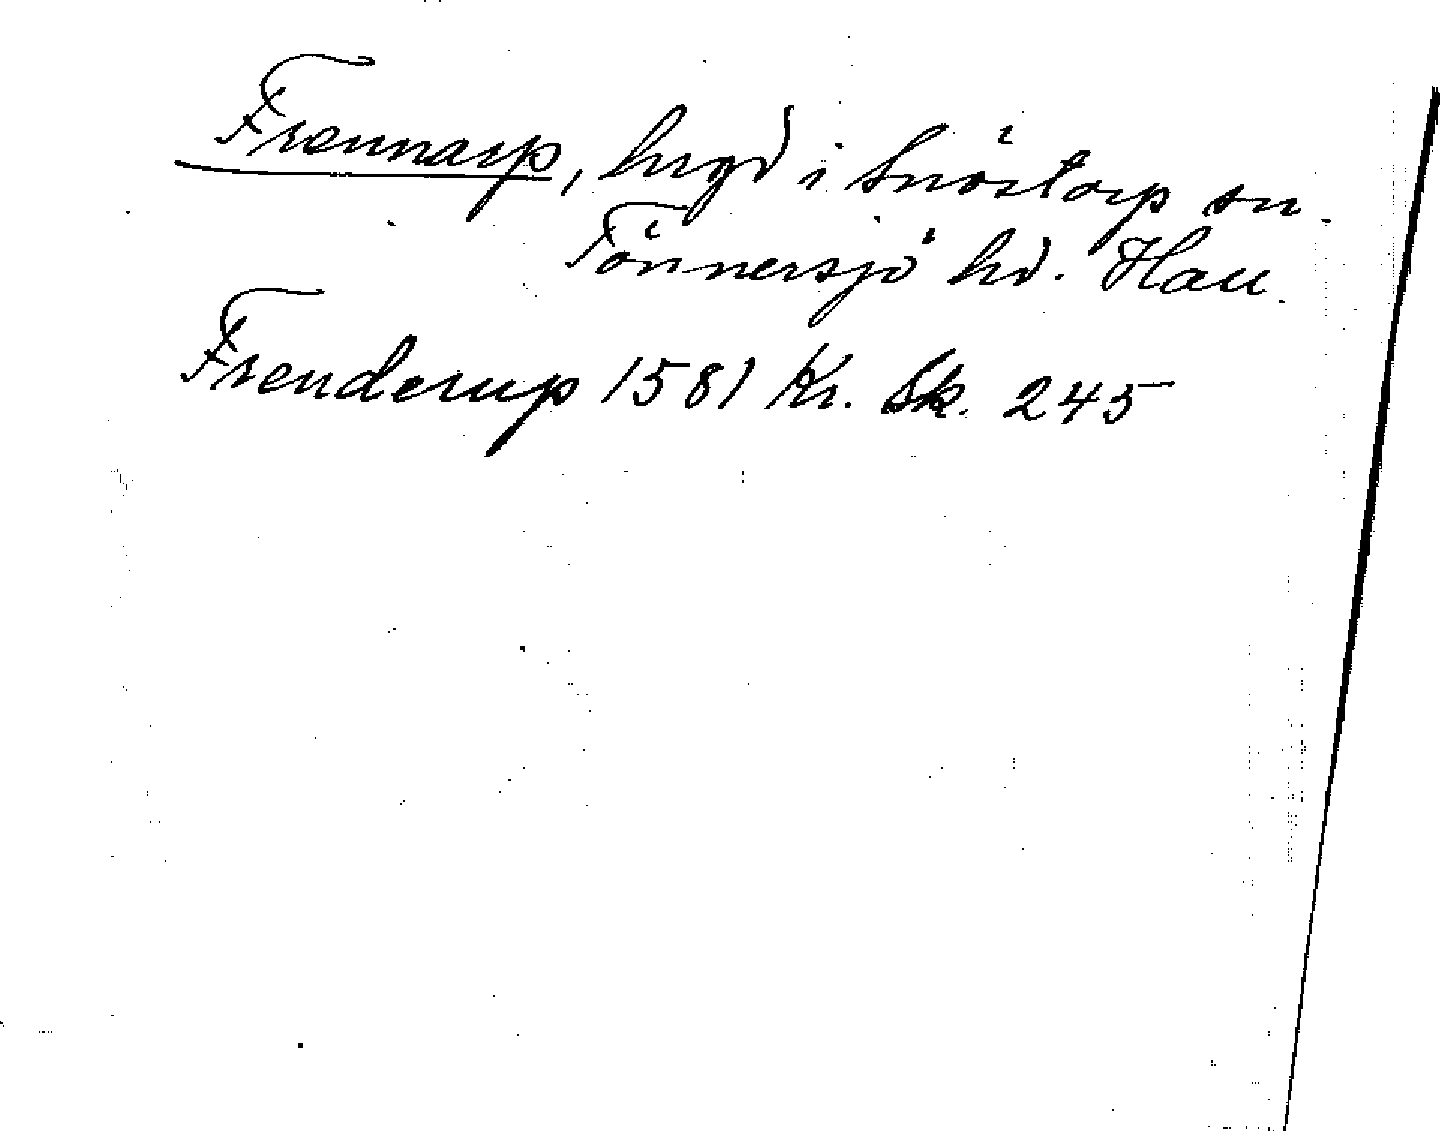 Frennarp, hrgd i Snöstorp sn.
Tönnersjö hd. Hall.
Frenderup 1581 Kr. Sk. 245